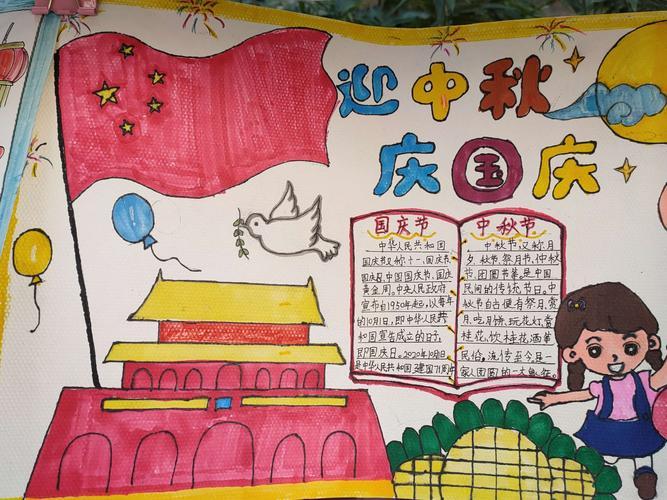 迎中秋
庆国庆
国庆节
中华人民共和国
国庆节又称十一、国庆节
国庆日、中国国庆节、国庆
黄金周。中央人民政府
宣布自1950年起，以每年
的10月1日，即中华人民共
和国宣告成立的日子，
即国庆日。2020年10月1日
是中华人民共和国建国71周年
中秋节
中秋节，又称月
夕、秋节、祭月节、仲秋
节、团圆节等。是中国
民间的传统节日。中
秋节自古便有祭月、赏
月、吃月饼、玩花灯、赏
桂花、饮桂花酒等
民俗，流传至今是一
家人团圆的一大